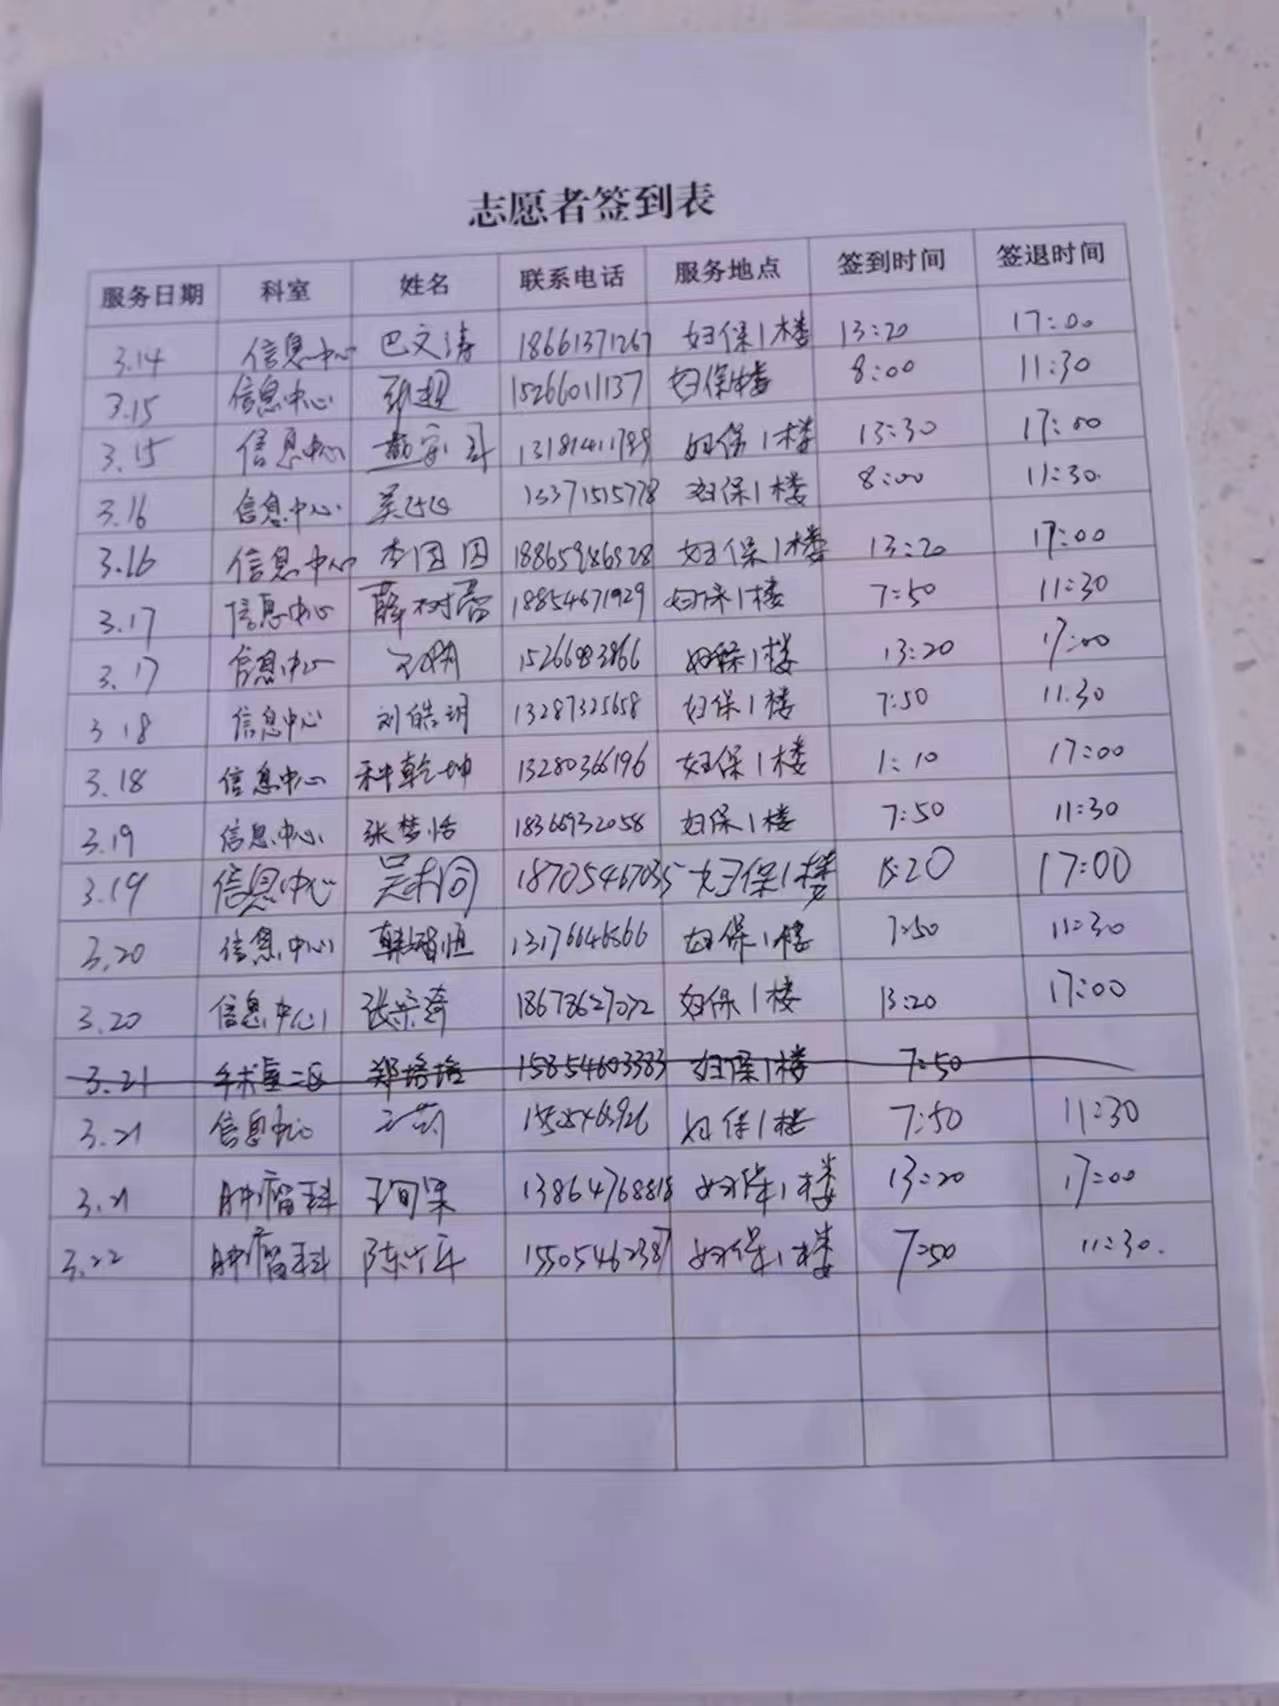 志愿者签到表
服务日期 科室 姓名 联系电话 服务地点 签到时间 签退时间
3.14 信息中心 巴文涛 18661371267 妇保1楼 13:20 17:00
3.15 信息中心 张超 15266011137 妇保1楼 8:00 11:30
3.15 信息中心 妇保1楼 13:30 17:00
3.16 信息中心 13371515778 妇保1楼 8:00 11:30
3.16 信息中心 李团团 妇保1楼 13:20 17:00
3.17 信息中心 薛树蕾 18854671929 妇保1楼 7:50 11:30
3.17 信息中心 妇保1楼 13:20 17:00
3.18 信息中心 刘皓玥 13287325658 妇保1楼 7:50 11:30
3.18 信息中心 乾坤 13280366196 妇保1楼 1:10 17:00
3.19 信息中心 张梦恬 18366932058 妇保1楼 7:50 11:30
3.19 信息中心 18705467035 妇保1楼 17:00
3.20 信息中心 韩智恒 13176646566 妇保1楼 7:50 11:30
3.20 信息中心 18678627072 妇保1楼 13:20 17:00
3.21 手术室二区 郑培培 15854603383 妇保1楼 7:50
3.21 信息中心 妇保1楼 7:50 11:30
3.21 肿瘤科 13864768818 妇保1楼 13:20 17:00
3.22 肿瘤科 15505462387 妇保1楼 7:50 11:30